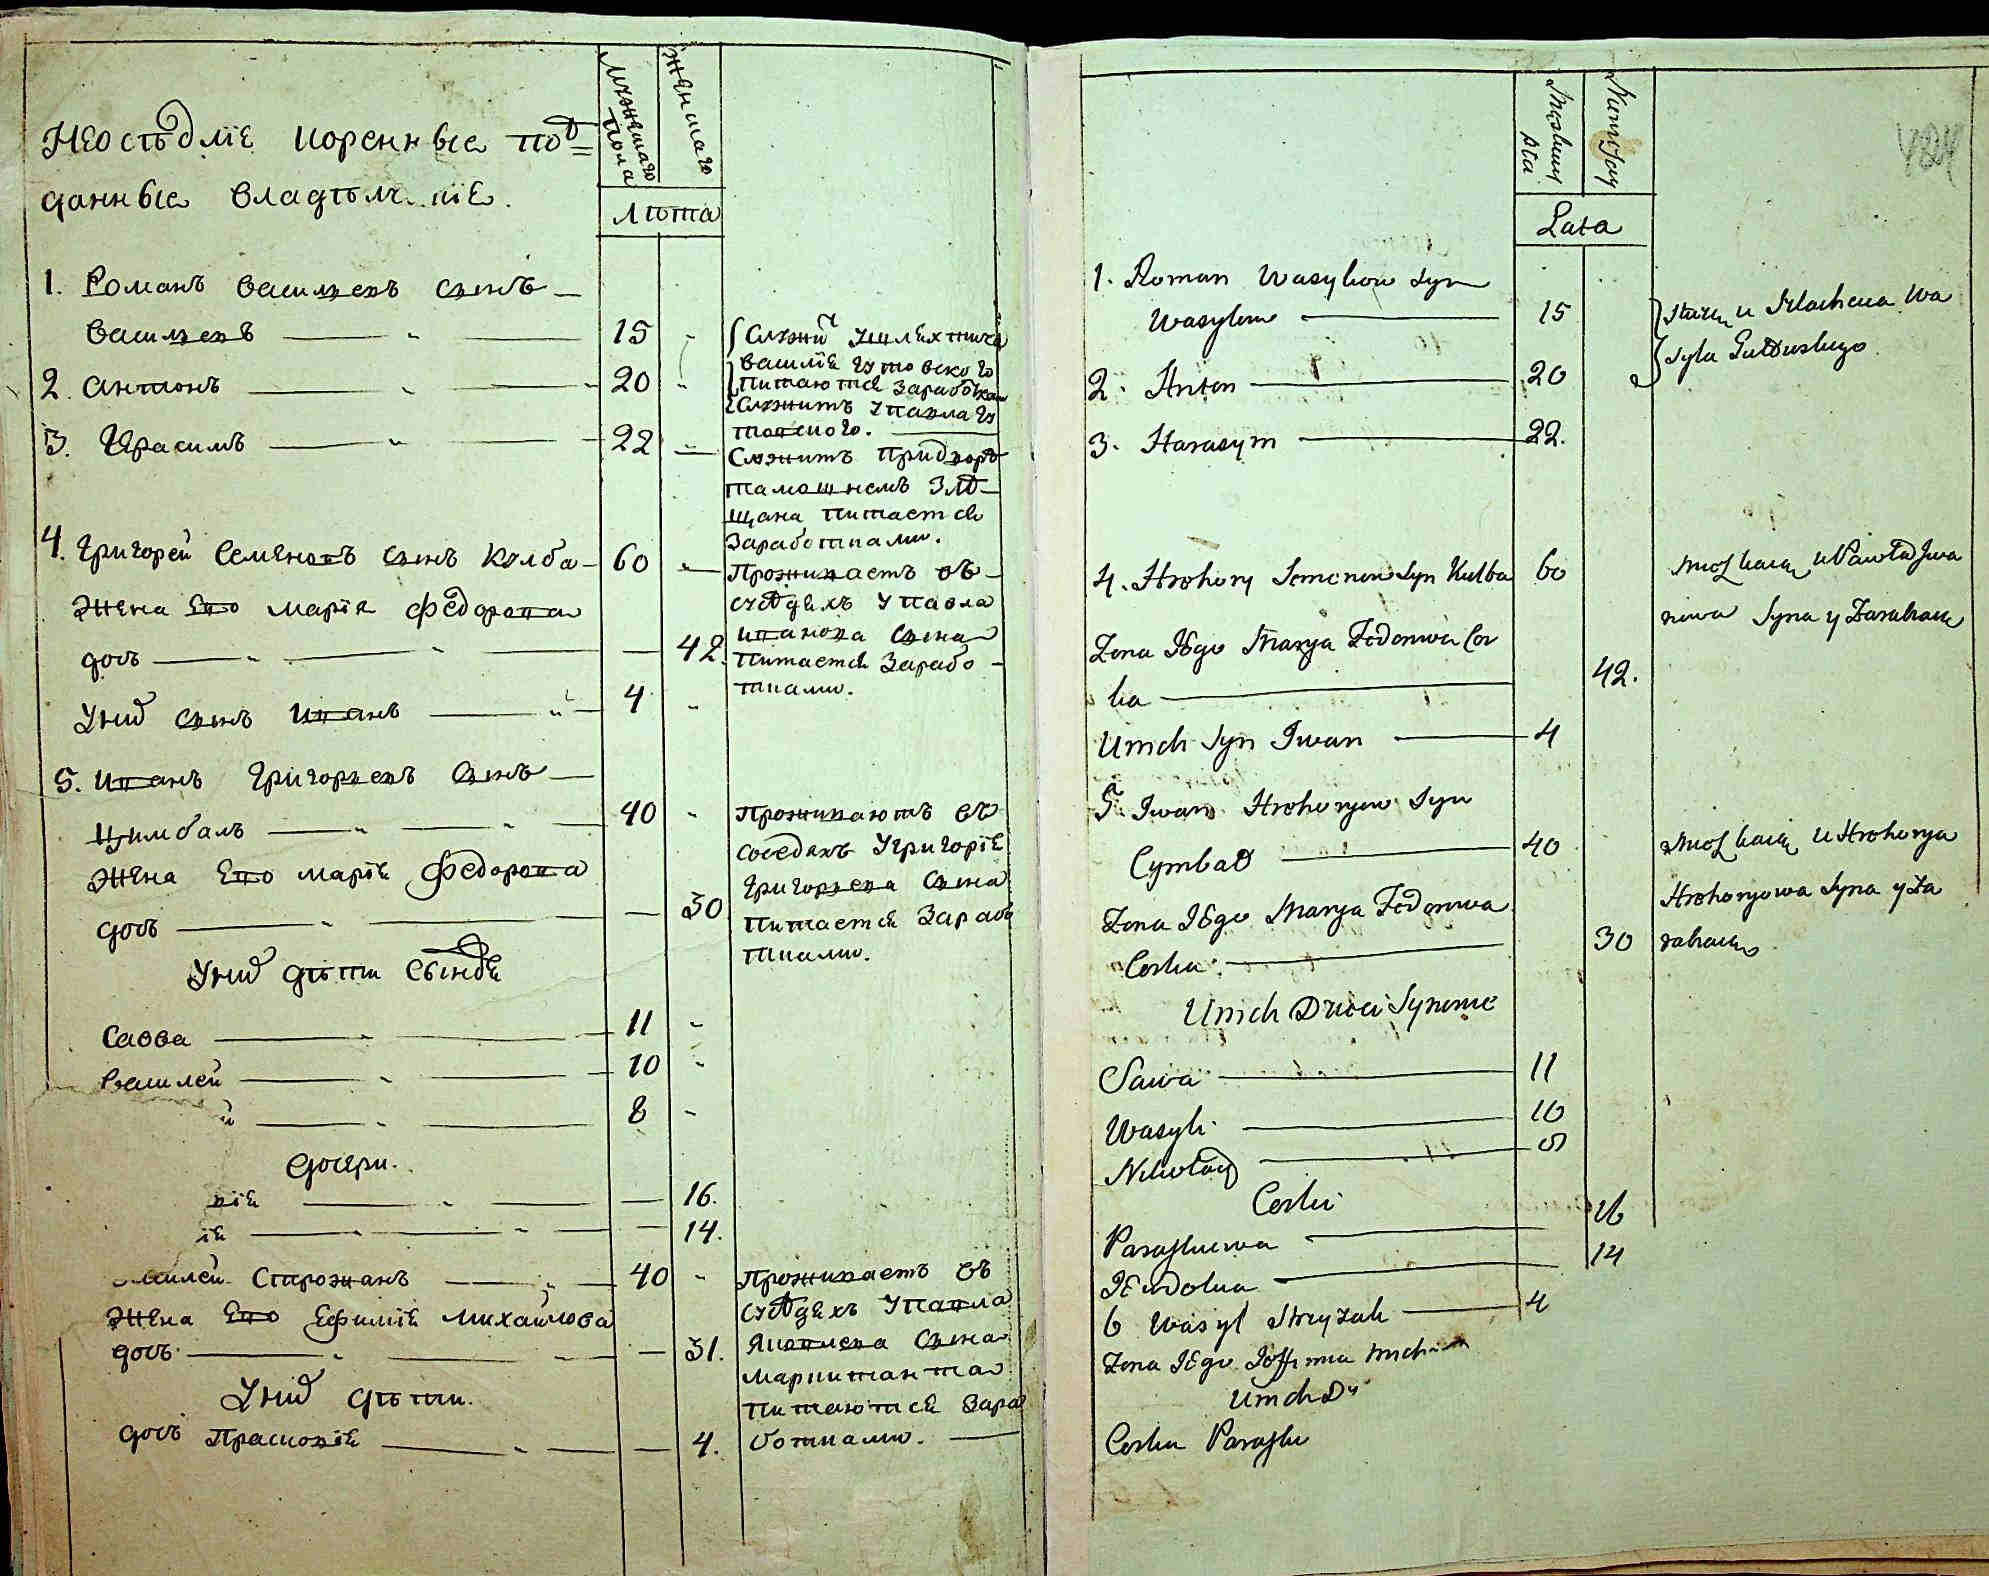 Мужеска пола
Женска
Неоседлие коренные под=
данные владелские.
Лета
1. Романъ Васильевъ сынъ
Васильевъ 15
{Служи у шляхтича
Василіе Гутовского
питаются заработками
2. Антонъ 20
{Служитъ у Павла Гу
товского.
3. Герасимъ 22
Служитъ при дворе
тамошнемъ
питается
заработками.
4. Григорей Семеновъ сынъ Кулба 60
Проживаетъ въ
суседехъ у Павла
Иванова сына
питается зарабо
тками.
Жена его Марія Федорова
дочь 42.
У них сынъ Иванъ 4
5. Иванъ Григорьевъ сынъ
Цимбалъ 40
Проживаютъ въ
соседяхъ у Григорія
Григорьева сына
питается зарабо
тками.
Жена его Марія Федорова
дочь 30
У них дети сыновя
Савва 11
Василей 10
й 8
дочери.
вія 16.
ія 14.
силей Сторожанъ 40
Проживаетъ въ
суседехъ у Павла
Яковлева сына
Маркитанта
питаются зара
ботками.
Жена его Ефимія Михайлова
дочь 31.
У них дети.
дочь Прасковія 4.
Męskiey
płci
Żenskiey
484
Lata
1. Roman Wasylow Syn
Wasylow 15
służy u Szlachcica Wa
syla Gutowskiego
2. Anton 20
3. Harasym 22.
4. Hrehory Semenow Syn Kulba 60
Mieszkaią u Pawła Iwa
nowa Syna y Zarabiaią
Zona IEgo Marya Fedorowa Cor
ka 42.
U nich Syn Iwan 4
5. Iwan Hrehoryow Syn
Cymbał 40
Mieszkaią u Hrehorya
Hrehoryowa Syna y Za
rabiaią
Zona IEgo Marya Fedorowa
Corka 30
U nich Dzieci Synowie
Sawa 11
Wasyli 10
Nikołay 8
Corki
Paraskiewa 16
IEwdokia 14
6 Wasyl Stryżak 4
Zona IEgo Joffimia Mich
U nich Dz
Corka Parask